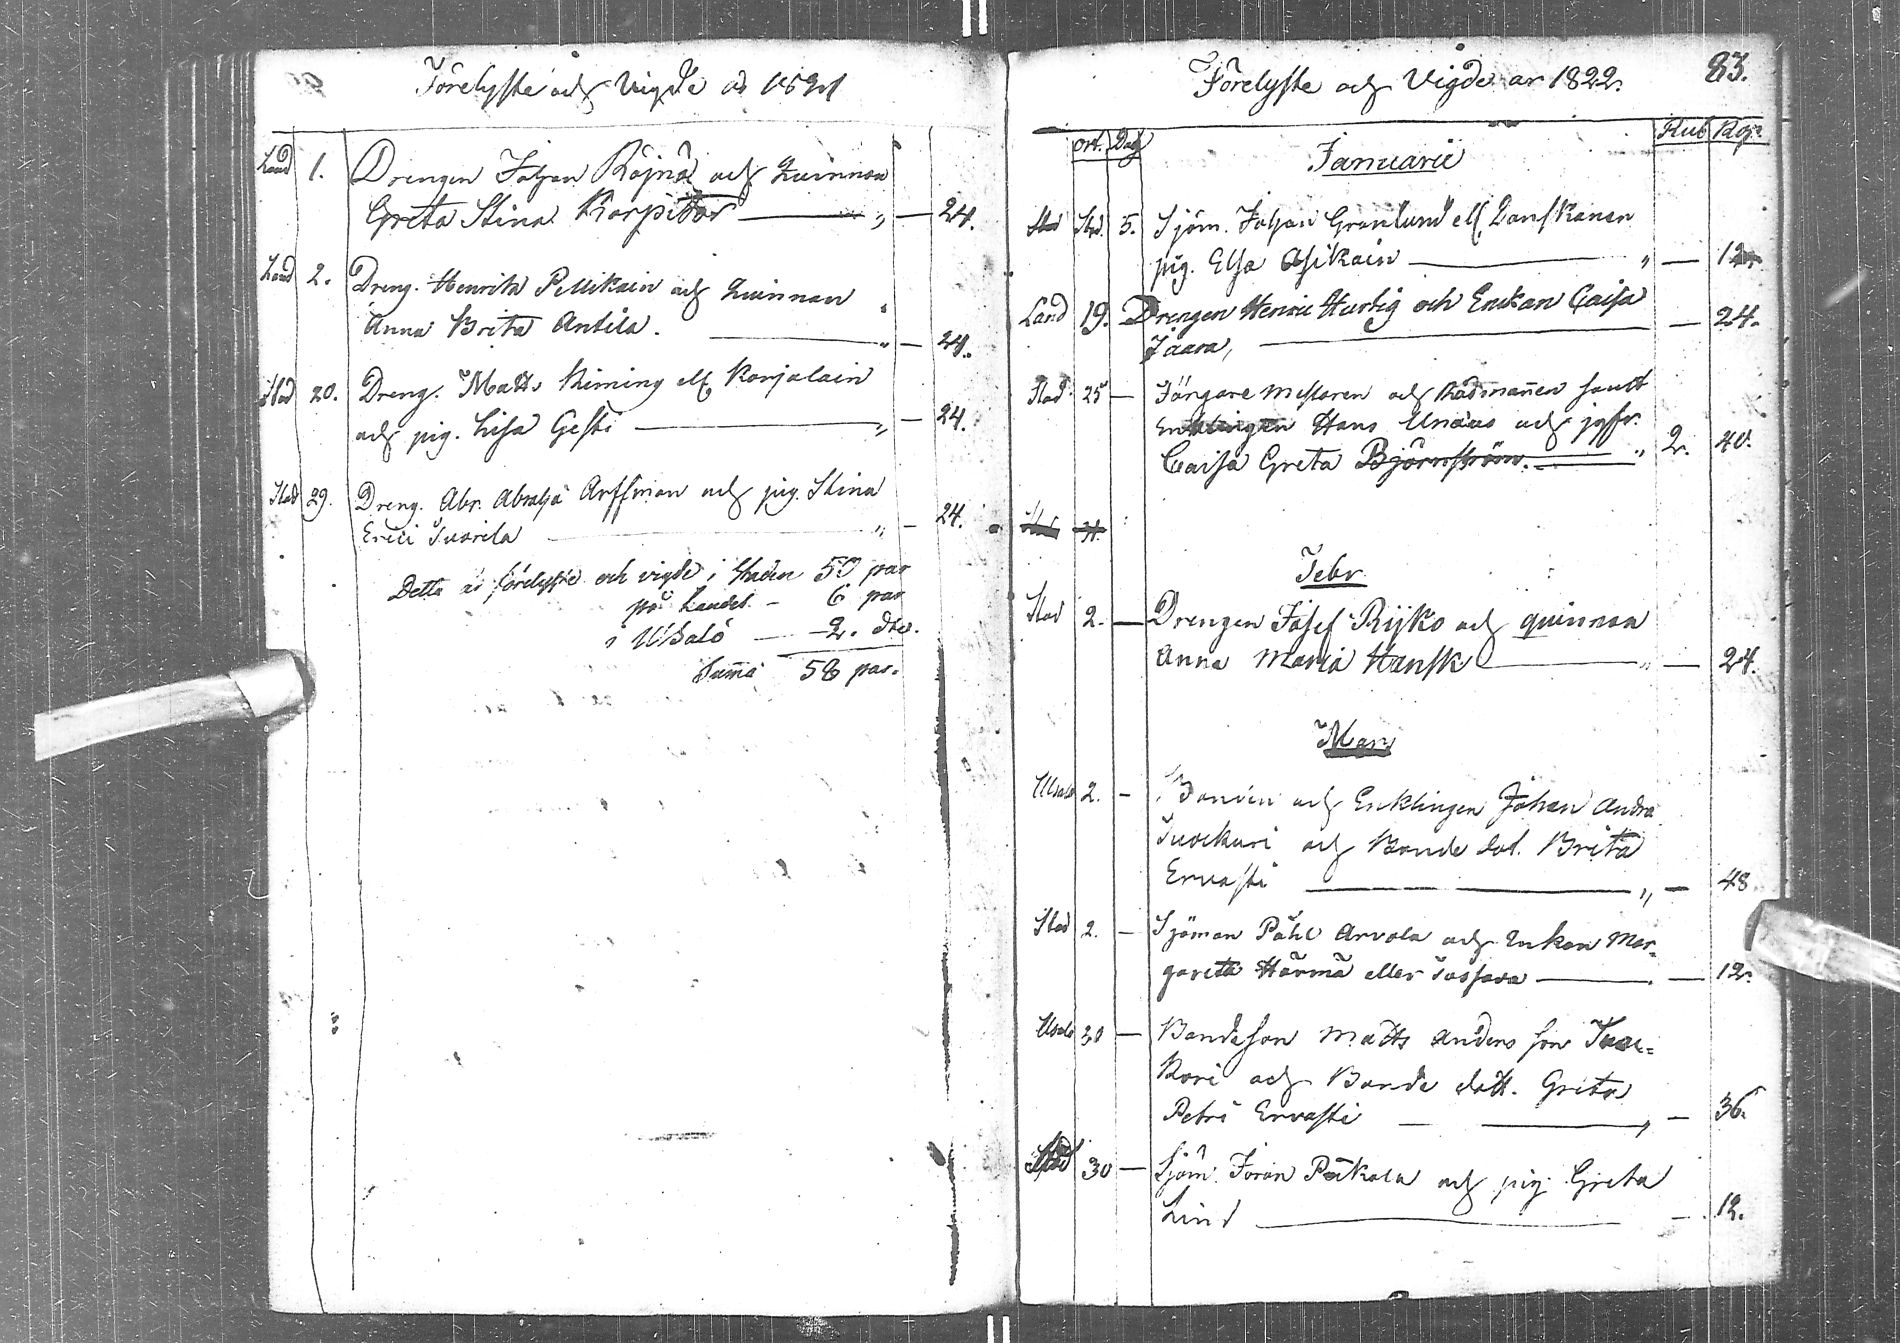 Förelyste och Vigde år 1821
Land 1. Drengen Johan Röjnä och Quinnan
Greta Stina Korpitar — „ — 24.
Land 2. Dreng. Henrik Pellikain och Quinnan
Anna Brita Antila. — „ — 24.
Stad 20. Dreng. Matts Kiming ell. Karjalain
och pig. Lisa Gesti — „ — 24.
Stad 29. Dreng. Abr. Abrahå Arffman och pig. Stina
Erici Tuorila — „ — 24.
Detta år förelyste och vigde i Staden 50 par
på Landet — 6 par
i Uhalö — 2. dto.
Summa 58 par.
83.
Förelyste och Vigde år 1822.
ort. Dag Rub Kop.
Januarii
Std. 5. Sjöm. Johan Granlund ell. Lanskanen
pig. Elsa Asikain — „ — 12.
Land 19. Drengen Henric Hurtig och Enkan Caisa
Jaara, — 24.
Stad 25 — Färgare mestaren och Rådmannen samt
Enklingen Hans Unæus och jgfr.
Caisa Greta Björnström. — „ 2. 40.
Febr.
Stad 2. — Drengen Josef Rijko och quinnan
Anna Maria Hansk — „ — 24.
Mars
Uhalö 2. — Bonden och Enklingen Johan Andra
Tuorkuri och Bonde dot. Brita
Ervasti — „ — 48.
Stad 2. — Sjöman Påhl Arvola och Enkan Mar-
gareta Härmä eller Tassara — 12.
Uhalö 30 — Bondeson Matts Anders son
Kori och Bonde dott. Greta
Petri Ervasti — „ — 36.
Stad 30 — Sjöm. Jöran Pakala och pig. Greta
Lind — 12.